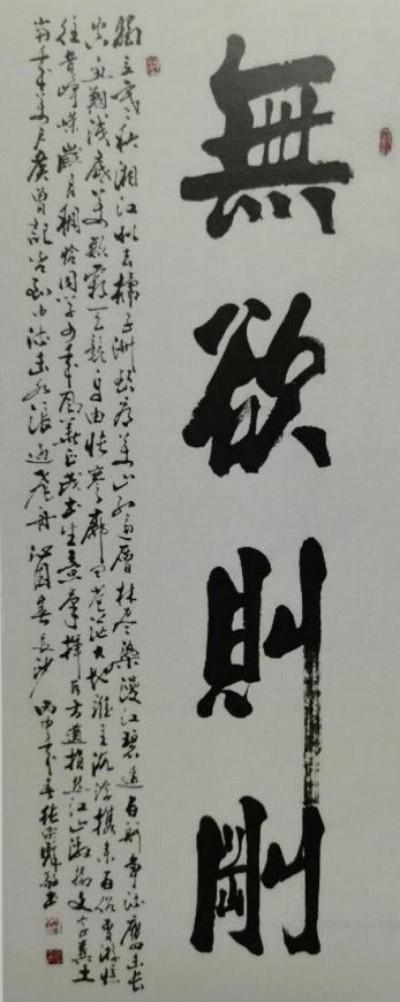 無欲則剛
獨立寒秋湘江北去橘子洲頭看萬山紅遍層林盡染漫江碧透百舸爭流鷹擊長
空魚翔淺底萬類霜天競自由悵寥廓問蒼茫大地誰主沉浮攜來百侶曾遊憶
往昔崢嶸歲月稠恰同學少年風華正茂書生意氣揮斥方遒指點江山激揚文字糞土
當年萬戶侯曾記否到中流擊水浪遏飛舟 沁園春長沙 丙申年春張